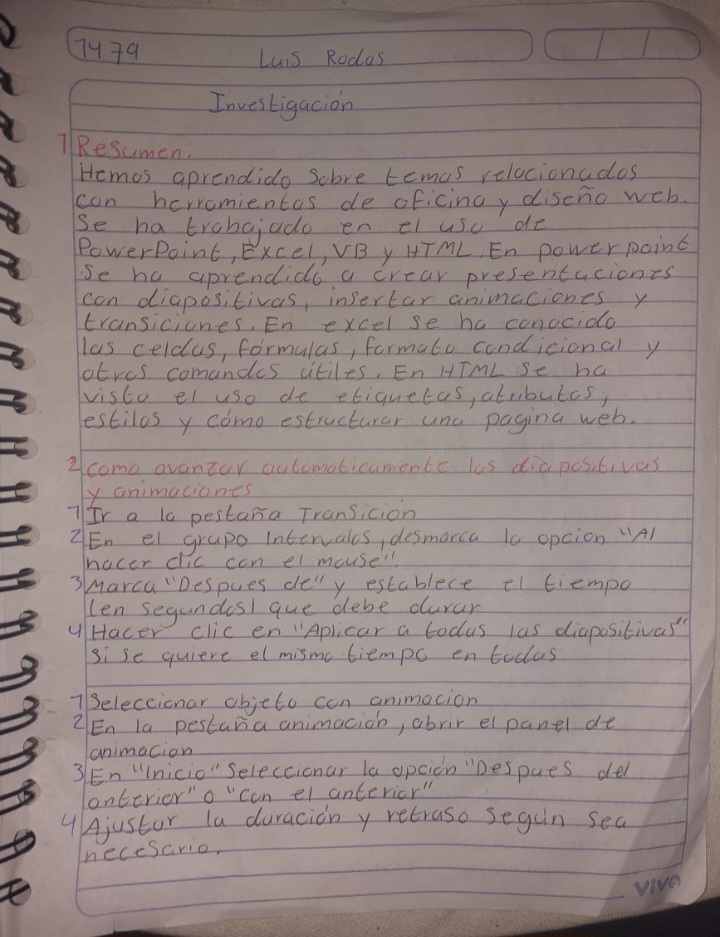 1479 Luis Rodas
Investigación
1 Resumen.
Hemos aprendido sobre temas relacionados
con herramientas de oficina y diseño web.
Se ha trabajado en el uso de
PowerPoint, Excel, VB y HTML. En powerpoint
se ha aprendido a crear presentaciones
con diapositivas, insertar animaciones y
transiciones. En excel se ha conocido
las celdas, fórmulas, formato condicional y
otros comandos útiles. En HTML se ha
visto el uso de etiquetas, atubutos,
estilos y cómo estructurar una pagina web.
2 como avanzar automaticamente las diapositivas
y animaciones
1 Ir a la pestaña Transición
2 En el grupo Intervalos, desmarca la opcion "Al
hacer clic con el mouse".
3 Marca "Despues de" y establece el tiempo
(en segundos) que debe durar
4 Hacer clic en "Aplicar a todas las diapositivas"
si se quiere el mismo tiempo en todas
1 Seleccionar objeto con animacion
2 En la pestaña animación, abrir el panel de
animacion
3 En "Inicio" Seleccionar la opción "Despues del
anterior" o "con el anterior"
4 Ajustar la duración y retraso según sea
necesario.
VIVA